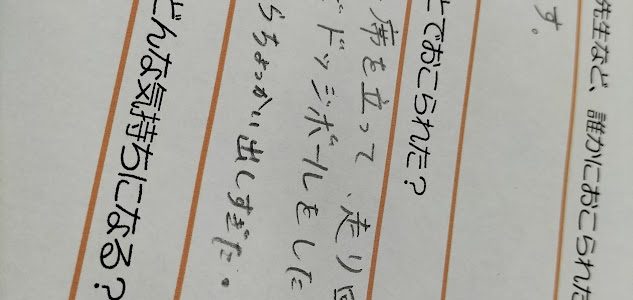 先生など、誰かにおこられた
す。
とでおこられた？
席を立って、走り回
ドッジボールをした
らちょっかい出しすぎた。
どんな気持ちになる？